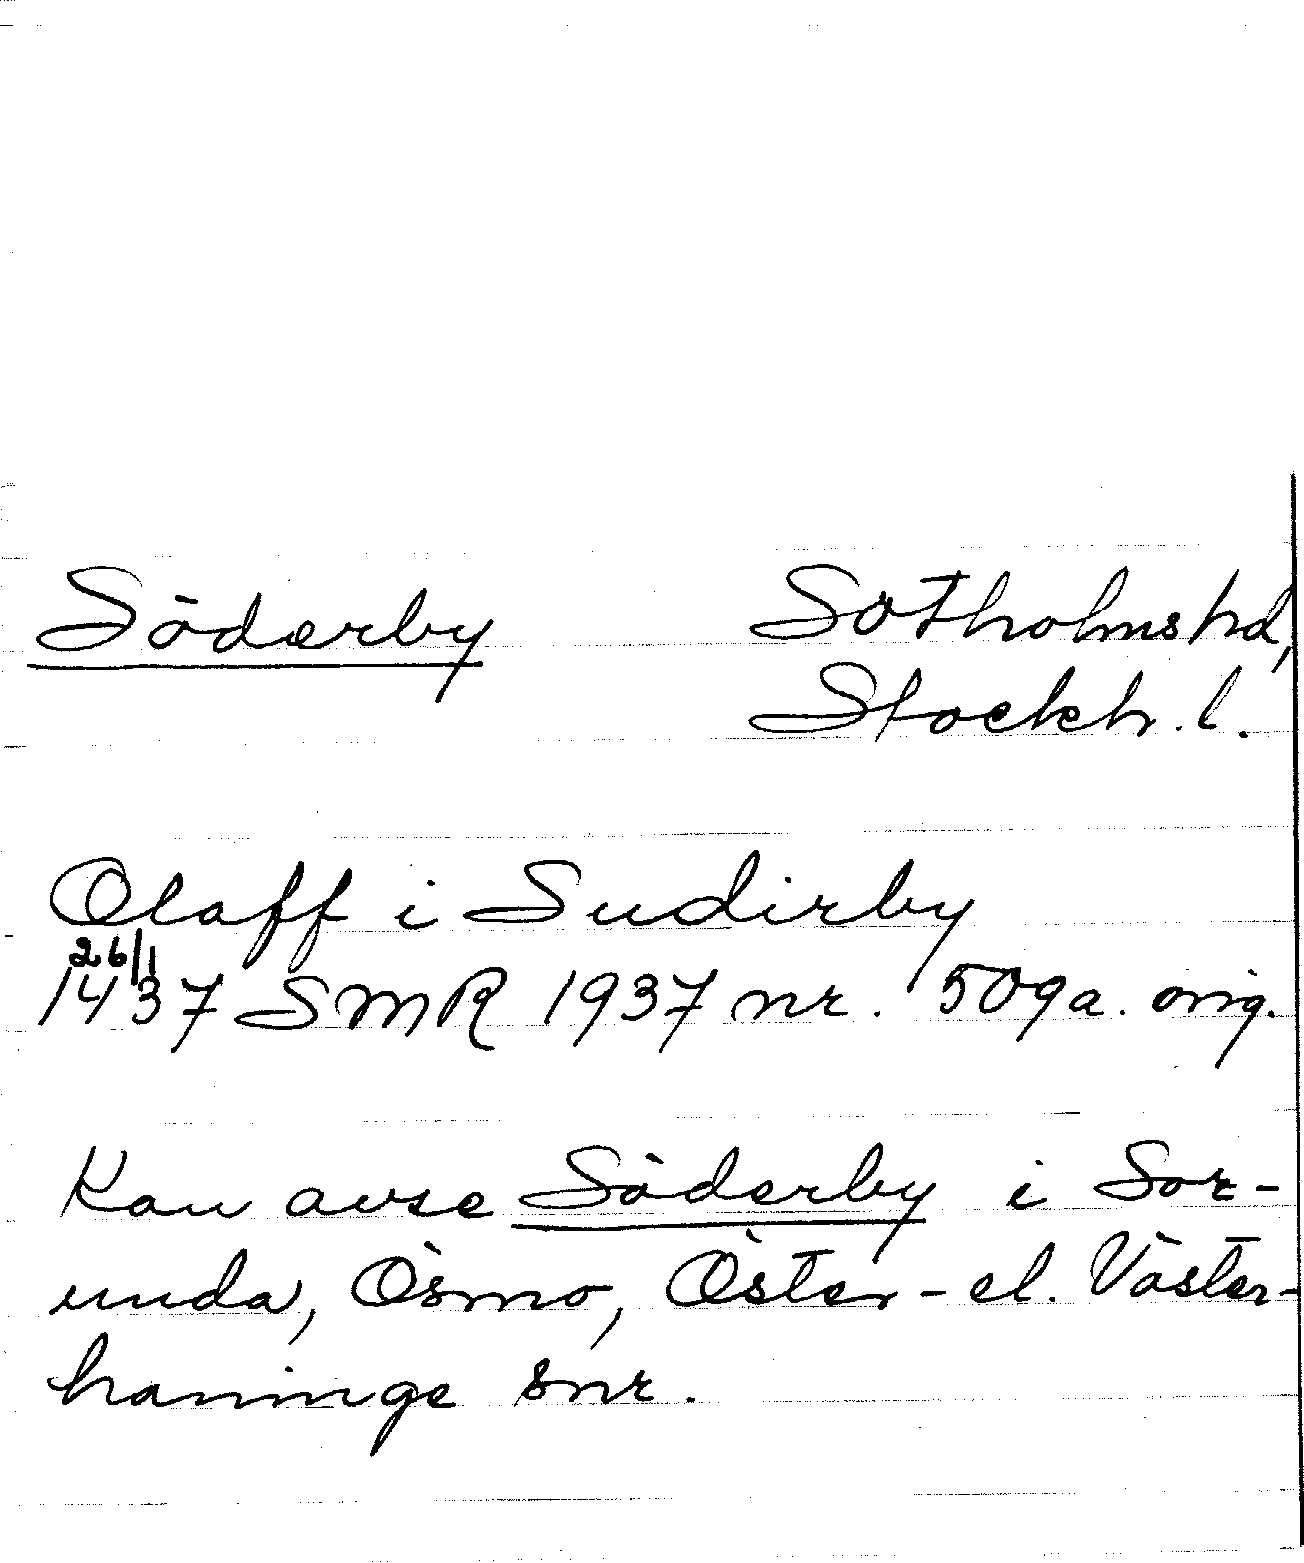 Söderby Sotholms hd,
Stockh. l.
Olaff i Sudirby
26/1
1437 SMR 1937 nr. 509a. orig.
Kan avse Söderby i Sor-
unda, Ösmo, Öster- el. Väster-
haninge snr.